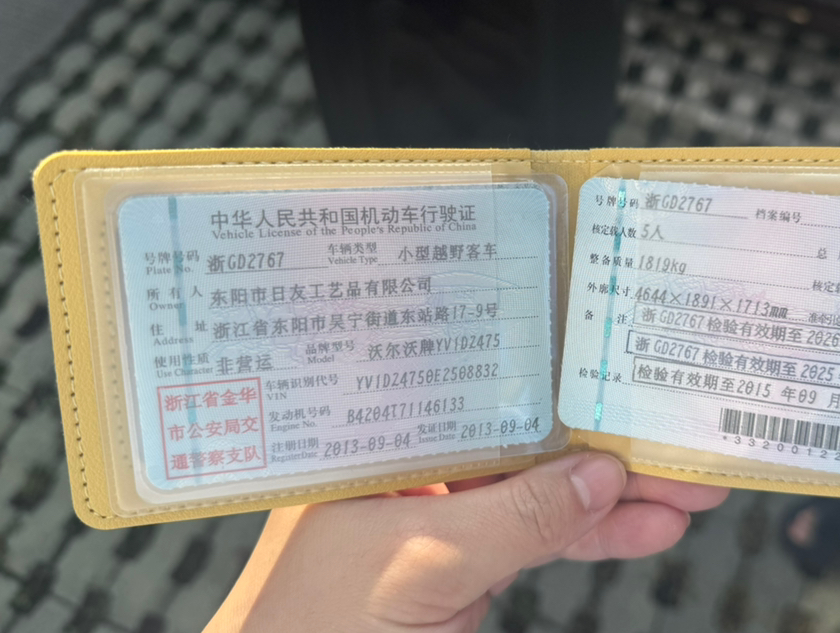 中华人民共和国机动车行驶证
Vehicle License of the People's Republic of China
号牌号码 浙GD2767 车辆类型 小型越野客车
Plate No. Vehicle Type
所有人 东阳市日友工艺品有限公司
Owner
住址 浙江省东阳市吴宁街道东站路17-9号
Address
使用性质 非营运 品牌型号 沃尔沃牌YV1DZ475
Use Character Model
浙江省金华
市公安局交
通警察支队
车辆识别代号 YV1DZ4750E2508832
VIN
发动机号码 B4204T71146133
Engine No.
注册日期 2013-09-04 发证日期 2013-09-04
Register Date Issue Date
号牌号码 浙GD2767 档案编号
核定载人数 5人 总
整备质量 1819kg 核定
外廓尺寸 4644×1891×1713mm 准牵
备注 浙GD2767检验有效期至2026
浙GD2767检验有效期至2025
检验记录 检验有效期至2015年09月
*3320012